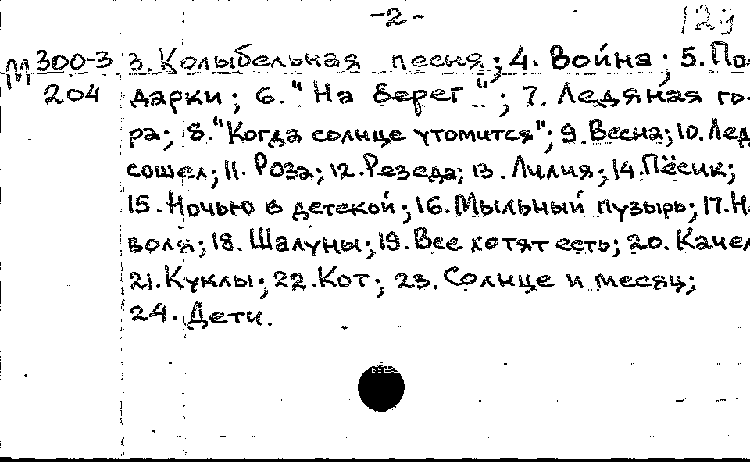 -2-
129
М 300-3 3. Колыбельная песня; 4. Война; 5. По-
204 дарки; 6. "На берег"; 7. Ледяная го-
ра; 8. "Когда солнце утомится"; 9. Весна; 10. Лед
сошел; 11. Роза; 12. Резеда; 13. Лилия; 14. Пёсик;
15. Ночью в детской; 16. Мыльный пузырь; 17. Н
воля; 18. Шалуны; 19. Все хотят есть; 20. Качел
21. Куклы; 22. Кот; 23. Солнце и месяц;
24. Дети.